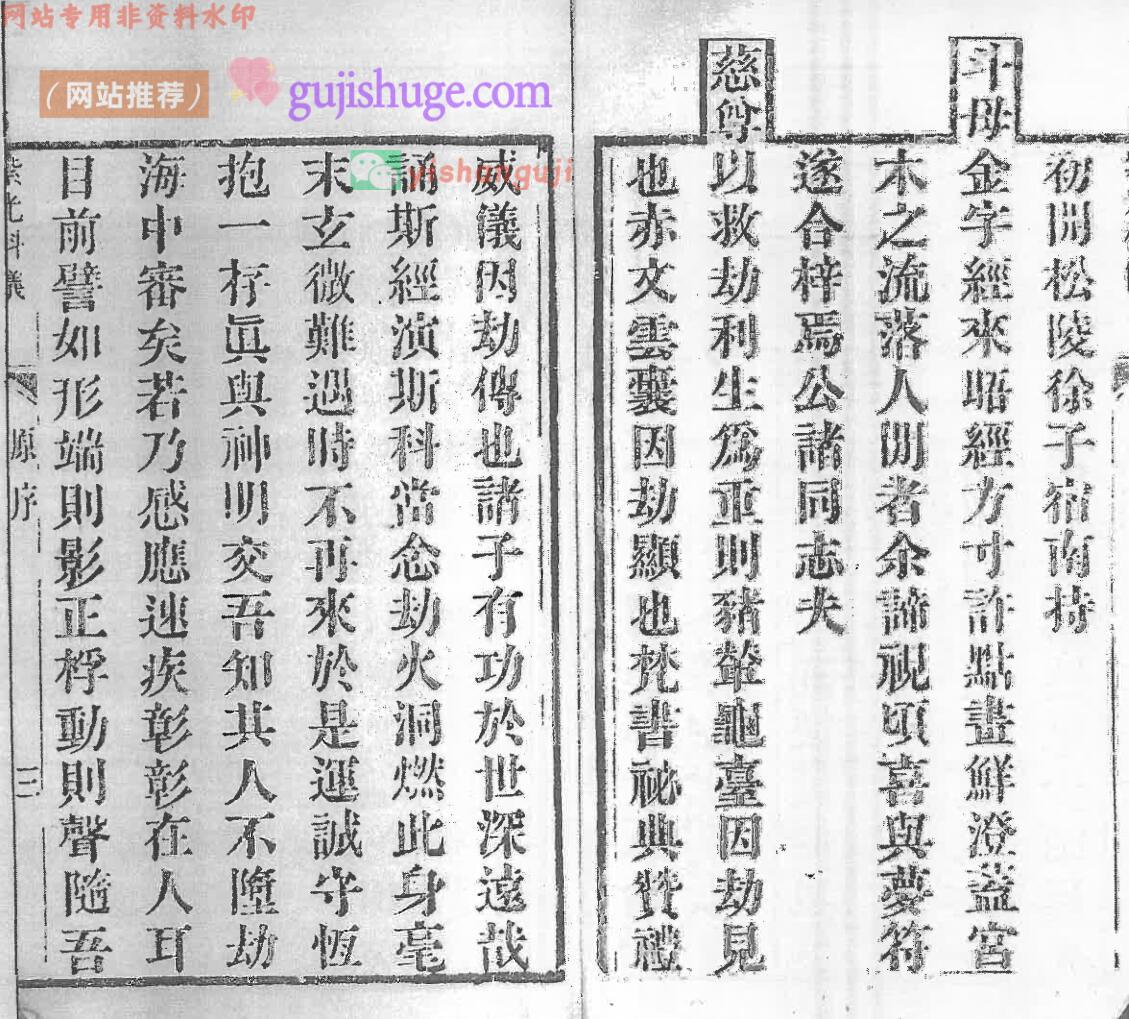 网站专用非资料水印
(网站推荐)
gujishuge.com
yishanguji
初開松陵徐子宿南持
斗母
金字經來晤經方寸許點畫鮮澄蓋宮
木之流落人間者余諦視頃喜與夢符
遂合梓焉公諸同志夫
慈尊
以救劫利生爲重則豬輦龜臺因劫見
也赤文雲囊因劫顯也梵書祕典贊禮
威儀因劫傳也諸子有功於世深遠哉
誦斯經演斯科當念劫火洞燃此身毫
末玄微難過時不再來於是運誠守恆
抱一存眞與神明交吾知其人不墮劫
海中審矣若乃感應速疾彰彰在人耳
目前譬如形端則影正桴動則聲隨吾
紫光科儀 原序 三